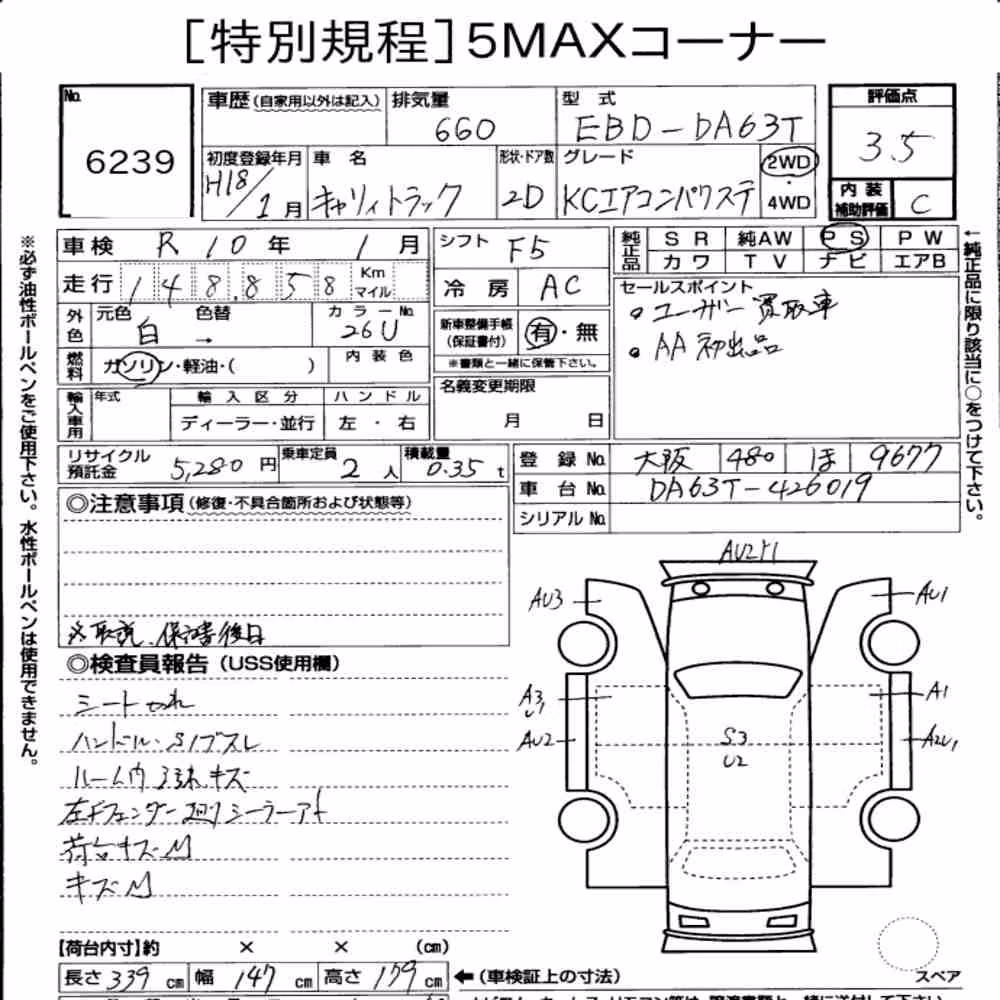 [特別規程] 5MAXコーナー
No. 6239
車歴 (自家用以外は記入)
排気量 660
型式 EBD-DA63T
評価点 3.5
初度登録年月 H18/1月
車名 キャリィトラック
形状・ドア数 2D
グレード KCエアコンパワステ
2WD・4WD
内装補助評価 C
車検 R10年 1月
シフト F5
純正品 SR 純AW PS PW
カワ TV ナビ エアB
走行 148,858 Km マイル
冷房 AC
セールスポイント
・ユーザー買取車
・AA初出品
外色 元色 白 色替 → カラーNo. 26U
新車整備手帳(保証書付) 有・無
※書類と一緒に保管下さい。
燃料 ガソリン・軽油・( ) 内装色
名義変更期限 月 日
輸入車用 年式 輸入区分 ハンドル
ディーラー・並行 左・右
リサイクル預託金 5,280円
乗車定員 2人
積載量 0.35t
登録No. 大阪 480 ほ 9677
車台No. DA63T-426019
シリアルNo.
◎注意事項(修復・不具合箇所および状態等)
※取説、保証書後日
◎検査員報告(USS使用欄)
シート切れ
ハンドル・S/ブスレ
ルーム内 汚れ キズ
左Fフェンダー廻りシーラーアト
荷台キズ・M
キズM
AU3
AU1
A3
U1
A1
AU2
S3
U2
【荷台内寸】約 × × (cm)
長さ 339 cm 幅 147 cm 高さ 179 cm ←(車検証上の寸法)
スペア
※必ず油性ボールペンをご使用下さい。水性ボールペンは使用できません。
←純正品に限り該当に○をつけて下さい。